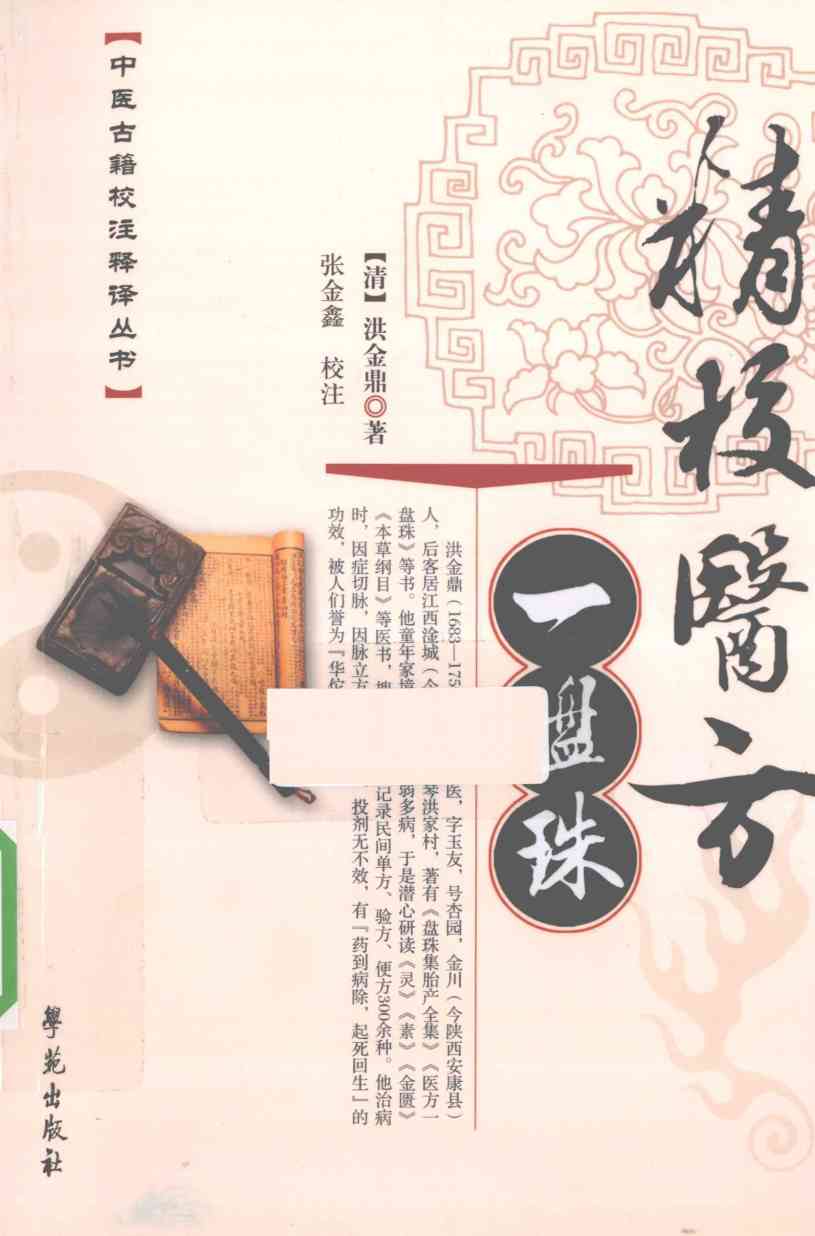 精校醫方
一盘珠
【清】洪金鼎◎著
张金鑫 校注
【中医古籍校注释译丛书】
洪金鼎（1683—175 医，字玉友，号杏园，金川（今陕西安康县）
人，后客居江西淦城（今 琴洪家村，著有《盘珠集胎产全集》《医方一
盘珠》等书。他童年家境 弱多病，于是潜心研读《灵》《素》《金匮》
《本草纲目》等医书， 记录民间单方、验方、便方300余种。他治病
时，因症切脉，因脉立方 投剂无不效，有『药到病除，起死回生』的
功效，被人们誉为『华佗
學苑出版社